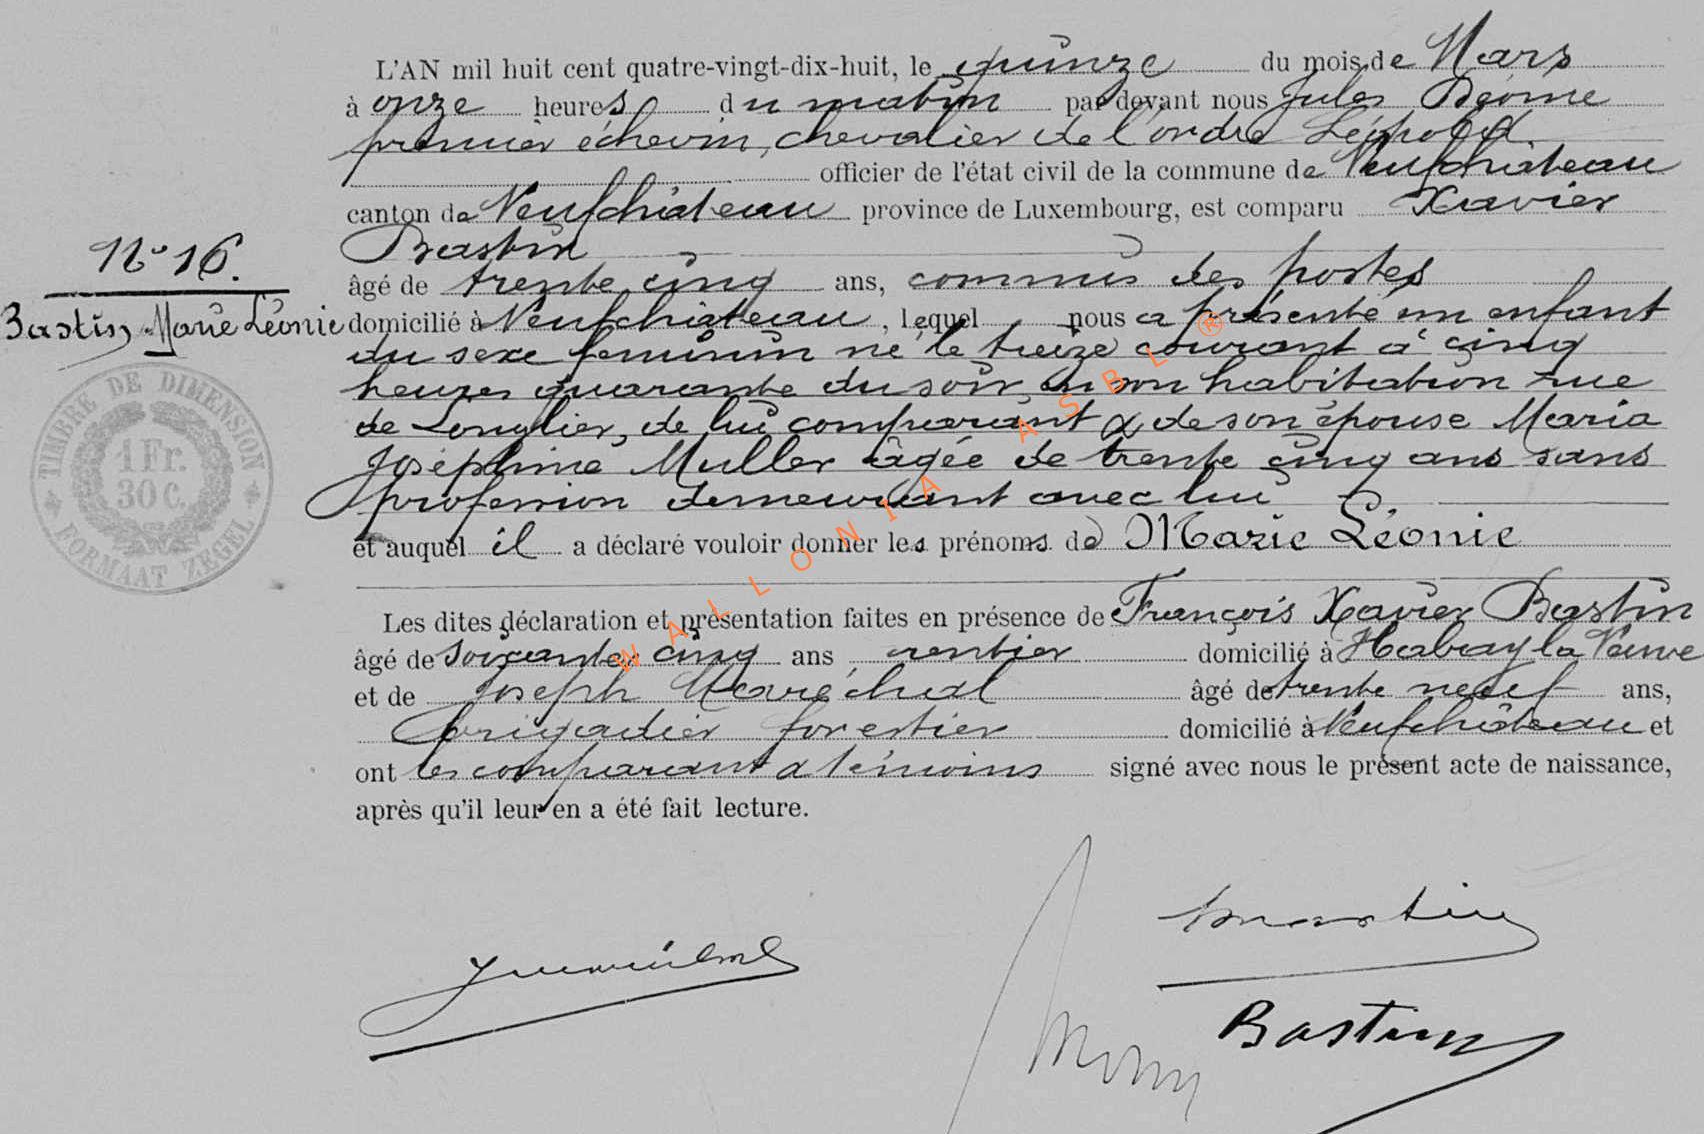 L'AN mil huit cent quatre-vingt-dix-huit, le quinze du mois de Mars
à onze heures du matin par devant nous Jules
premier échevin, chevalier de l'ordre Léopold
officier de l'état civil de la commune de Neufchâteau
canton de Neufchâteau province de Luxembourg, est comparu Xavier
Bastin
âgé de trente cinq ans, commis des postes
domicilié à Neufchâteau, lequel nous a présenté un enfant
du sexe feminin né le treize courant à cinq
heures quarante du soir, en son habitation rue
de Longlier, de lui comparant & de son épouse Maria
Joséphine Muller âgée de trente cinq ans sans
profession demeurant avec lui
et auquel il a déclaré vouloir donner les prénoms de Marie Léonie
Les dites déclaration et présentation faites en présence de François Xavier Bastin
âgé de soixante cinq ans rentier domicilié à Habay la Neuve
et de Joseph Maréchal âgé de trente neuf ans,
brigadier forestier domicilié à Neufchâteau et
ont les comparant & témoins signé avec nous le présent acte de naissance,
après qu'il leur en a été fait lecture.
N° 16.
Bastin Marie Léonie
TIMBRE DE DIMENSION
1 Fr.
30 C.
FORMAAT ZEGEL
WALLONIA ASBL ®
Bastin